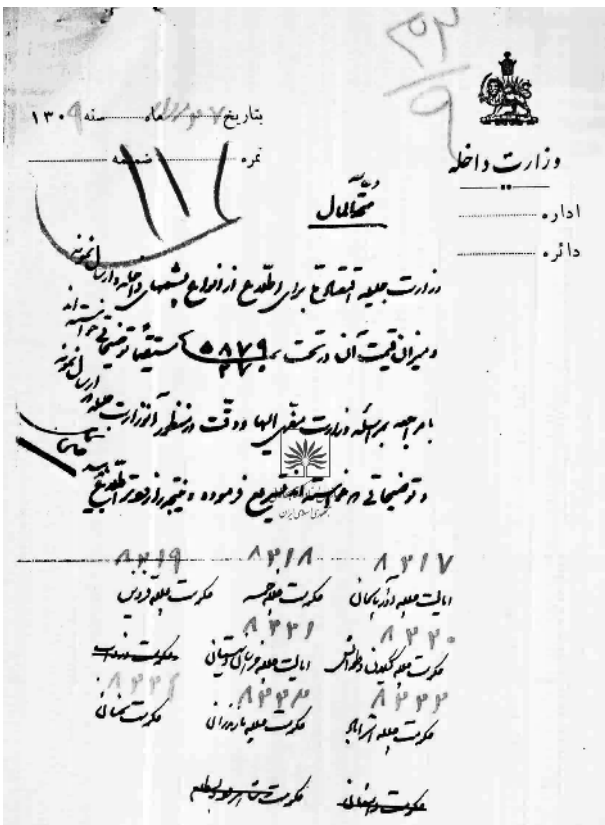 وزارت داخله
اداره
دائره
بتاریخ ۲۷ مرداد ماه سنه ۱۳۰۹
نمره ضمیمه
۱۱۱
متحدالمال
وزارت جلیله اقتصاد برای اطلاع از انواع پشمهای داخله و ارسال نمونه
و میزان قیمت آن در تحت نمره ۵۸۷۹ مستقیماً توضیحاتی خواسته‌اند
با مراجعه بمراسله وزارت معزی الیها و دقت در منظور آنوزارت جلیله ارسال نمونه
و توضیحاتی در خواسته‌اند تسریع فرموده و نتیجه را زودتر اطلاع دهید
جمهوری اسلامی ایران
۸۳۱۷ ۸۳۱۸ ۸۳۱۹
ایالت جلیله آذربایجان حکومت جلیله خمسه حکومت جلیله قزوین
۸۳۲۰ ۸۳۲۱
حکومت جلیله گیلان و طوالش ایالت جلیله خراسان و سیستان حکومت
۸۳۲۲ ۸۳۲۳ ۸۳۲۴
حکومت جلیله استراباد حکومت جلیله مازندران حکومت سمنان
حکومت دامغان حکومت شاهرود و بسطام